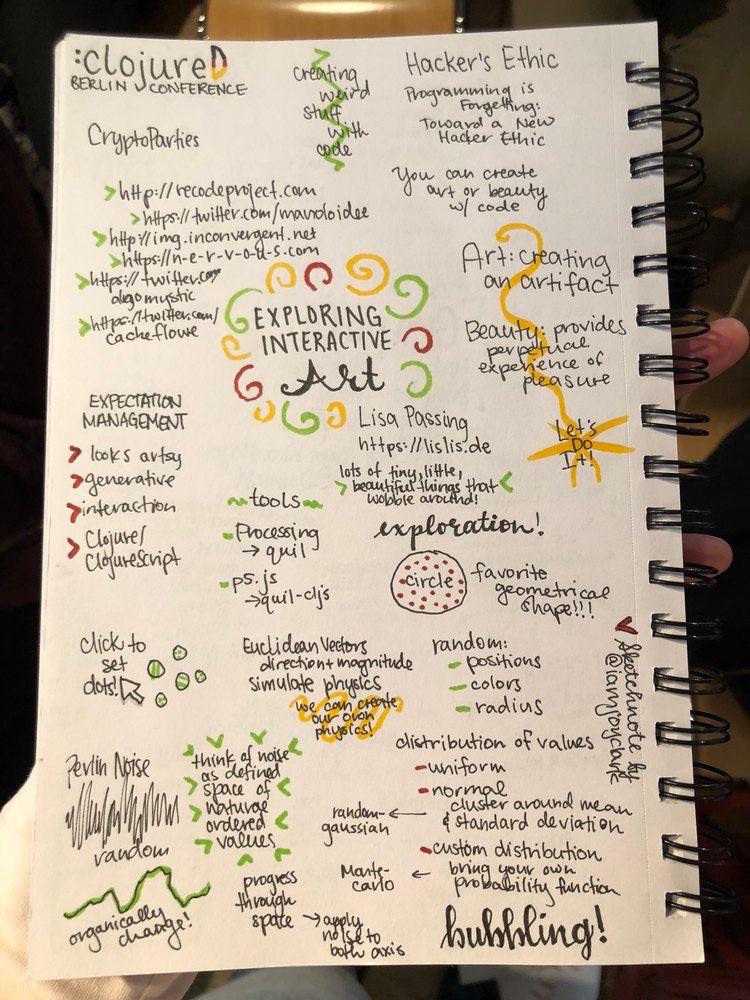 :clojureD
BERLIN CONFERENCE
creating
weird
stuff
with
code
Hacker's Ethic
Programming is
Forgetting:
Toward a New
Hacker Ethic
CryptoParties
You can create
art or beauty
w/ code
> http://recodeproject.com
> https://twitter.com/manoloidee
> http://img.inconvergent.net
> https://n-e-r-v-o-u-s.com
> https://twitter.com/
algomystic
> https://twitter.com/
cacheflowe
EXPLORING
INTERACTIVE
Art
Lisa Passing
https://lislis.de
Art: creating
an artifact
Beauty: provides
perpetual
experience of
pleasure
Let's
Do
It!
EXPECTATION
MANAGEMENT
> looks artsy
> generative
> interaction
> Clojure/
ClojureScript
~tools~
- Processing
→ quil
- p5.js
→ quil-cljs
lots of tiny, little,
> beautiful things that <
wobble around!
exploration!
circle
favorite
geometrical
shape!!!
click to
set
dots!
Euclidean Vectors
direction + magnitude
simulate physics
we can create
our own
physics!
random:
- positions
- colors
- radius
Sketchnote by
@iamjoyclark
Perlin Noise
random
organically
change!
think of noise
as defined
space of
natural
ordered
values
progress
through
space → apply
noise to
both axis
distribution of values
- uniform
- normal
cluster around mean
& standard deviation
random- ←
gaussian
- custom distribution
bring your own
probability function
Monte- ←
carlo
bubbling!